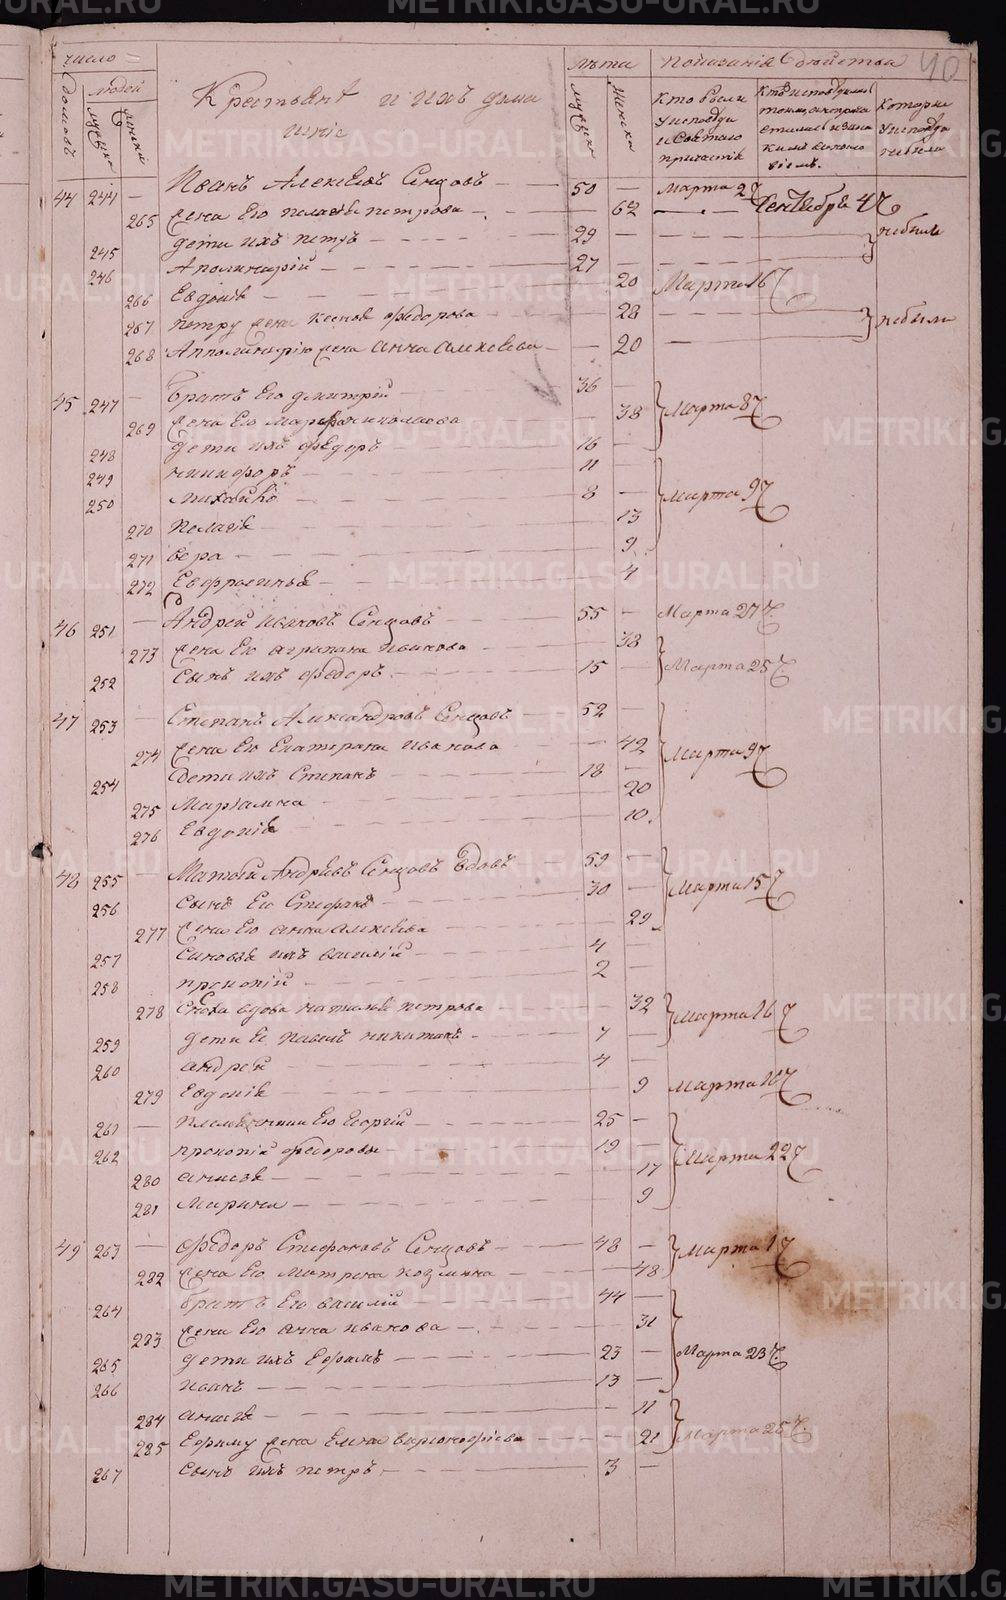 40
число
домовъ
людей
мужска
женска
Крестьянѣ и ихъ дома
шніе
лѣта
мужска
женска
показаніе бытства
Кто были
у исповѣди
и Святаго
причастія
Которые
у исповѣди
небыли
44 244 — Иванъ Алексѣевъ Сенцовъ — 50 — Марта 2 Ч
265 жена Его пелагѣя петрова — — 62 — Сентября 4 Ч
245 дети ихъ петръ — 29 — небыли
246 Аполинарій — 27
266 Евдокія — 20 Марта 16 Ч
267 петру жена Ксенія Федорова — 28 — небыли
268 Апполинарію жена Анна Алексѣева — 20 —
45 247 — братъ Его дмитрій — 36 —
269 жена Его Марфа николаева — 38 Марта 8 Ч
248 дети ихъ Федоръ — 16 —
249 никифоръ — 11 —
250 михайло — 8 — Марта 9 Ч
270 Пелагѣя — 13
271 вера — 9
272 Евфросинья — 4
46 251 — Андрей Ивановъ Сенцовъ — 55 — Марта 27 Ч
273 жена Его агрипина Иванова — 38
252 Сынъ ихъ Федоръ — 15 — Марта 25 Ч
47 253 — Степанъ Александровъ Сенцовъ — 52 —
274 жена Его Екатерина Иванова — 42 Марта 9 Ч
254 дети ихъ Степанъ — 18 —
275 Марьамна — 20
276 Евдокія — 10
48 255 — Матвѣй Андрѣевъ Сенцовъ вдовъ — 59 —
256 сынъ Его Стефанъ — 30 — Марта 15 Ч
277 жена Его анна алексѣева — 29
257 Сыновья ихъ василій — 4 —
258 прокопій — 2 —
278 Сноха вдова наталья петрова — 32 Марта 16 Ч
259 дети Ее павелъ никитинъ — 7 —
260 андрей — 4 —
279 Евдокія — 9 Марта 16 Ч
261 — племянники Его Георгій — 25 —
262 прокопій Федоровы — 19 — Марта 22 Ч
280 анисья — 17
281 Марина — 9
49 263 — Федоръ Стефановъ Сенцовъ — 48 — Марта 1 Ч
282 жена Его Матрена козмина — 48
264 братъ Его василій — 44 —
283 жена Его анна иванова — 31
265 дети ихъ Ефримъ — 23 — Марта 23 Ч
266 иванъ — 13 —
284 анисья — 11
285 Ефриму жена Елена варфоломѣева — 21 Марта 25 Ч
267 сынъ ихъ петръ — 3 —
METRIKI.GASO-URAL.RU